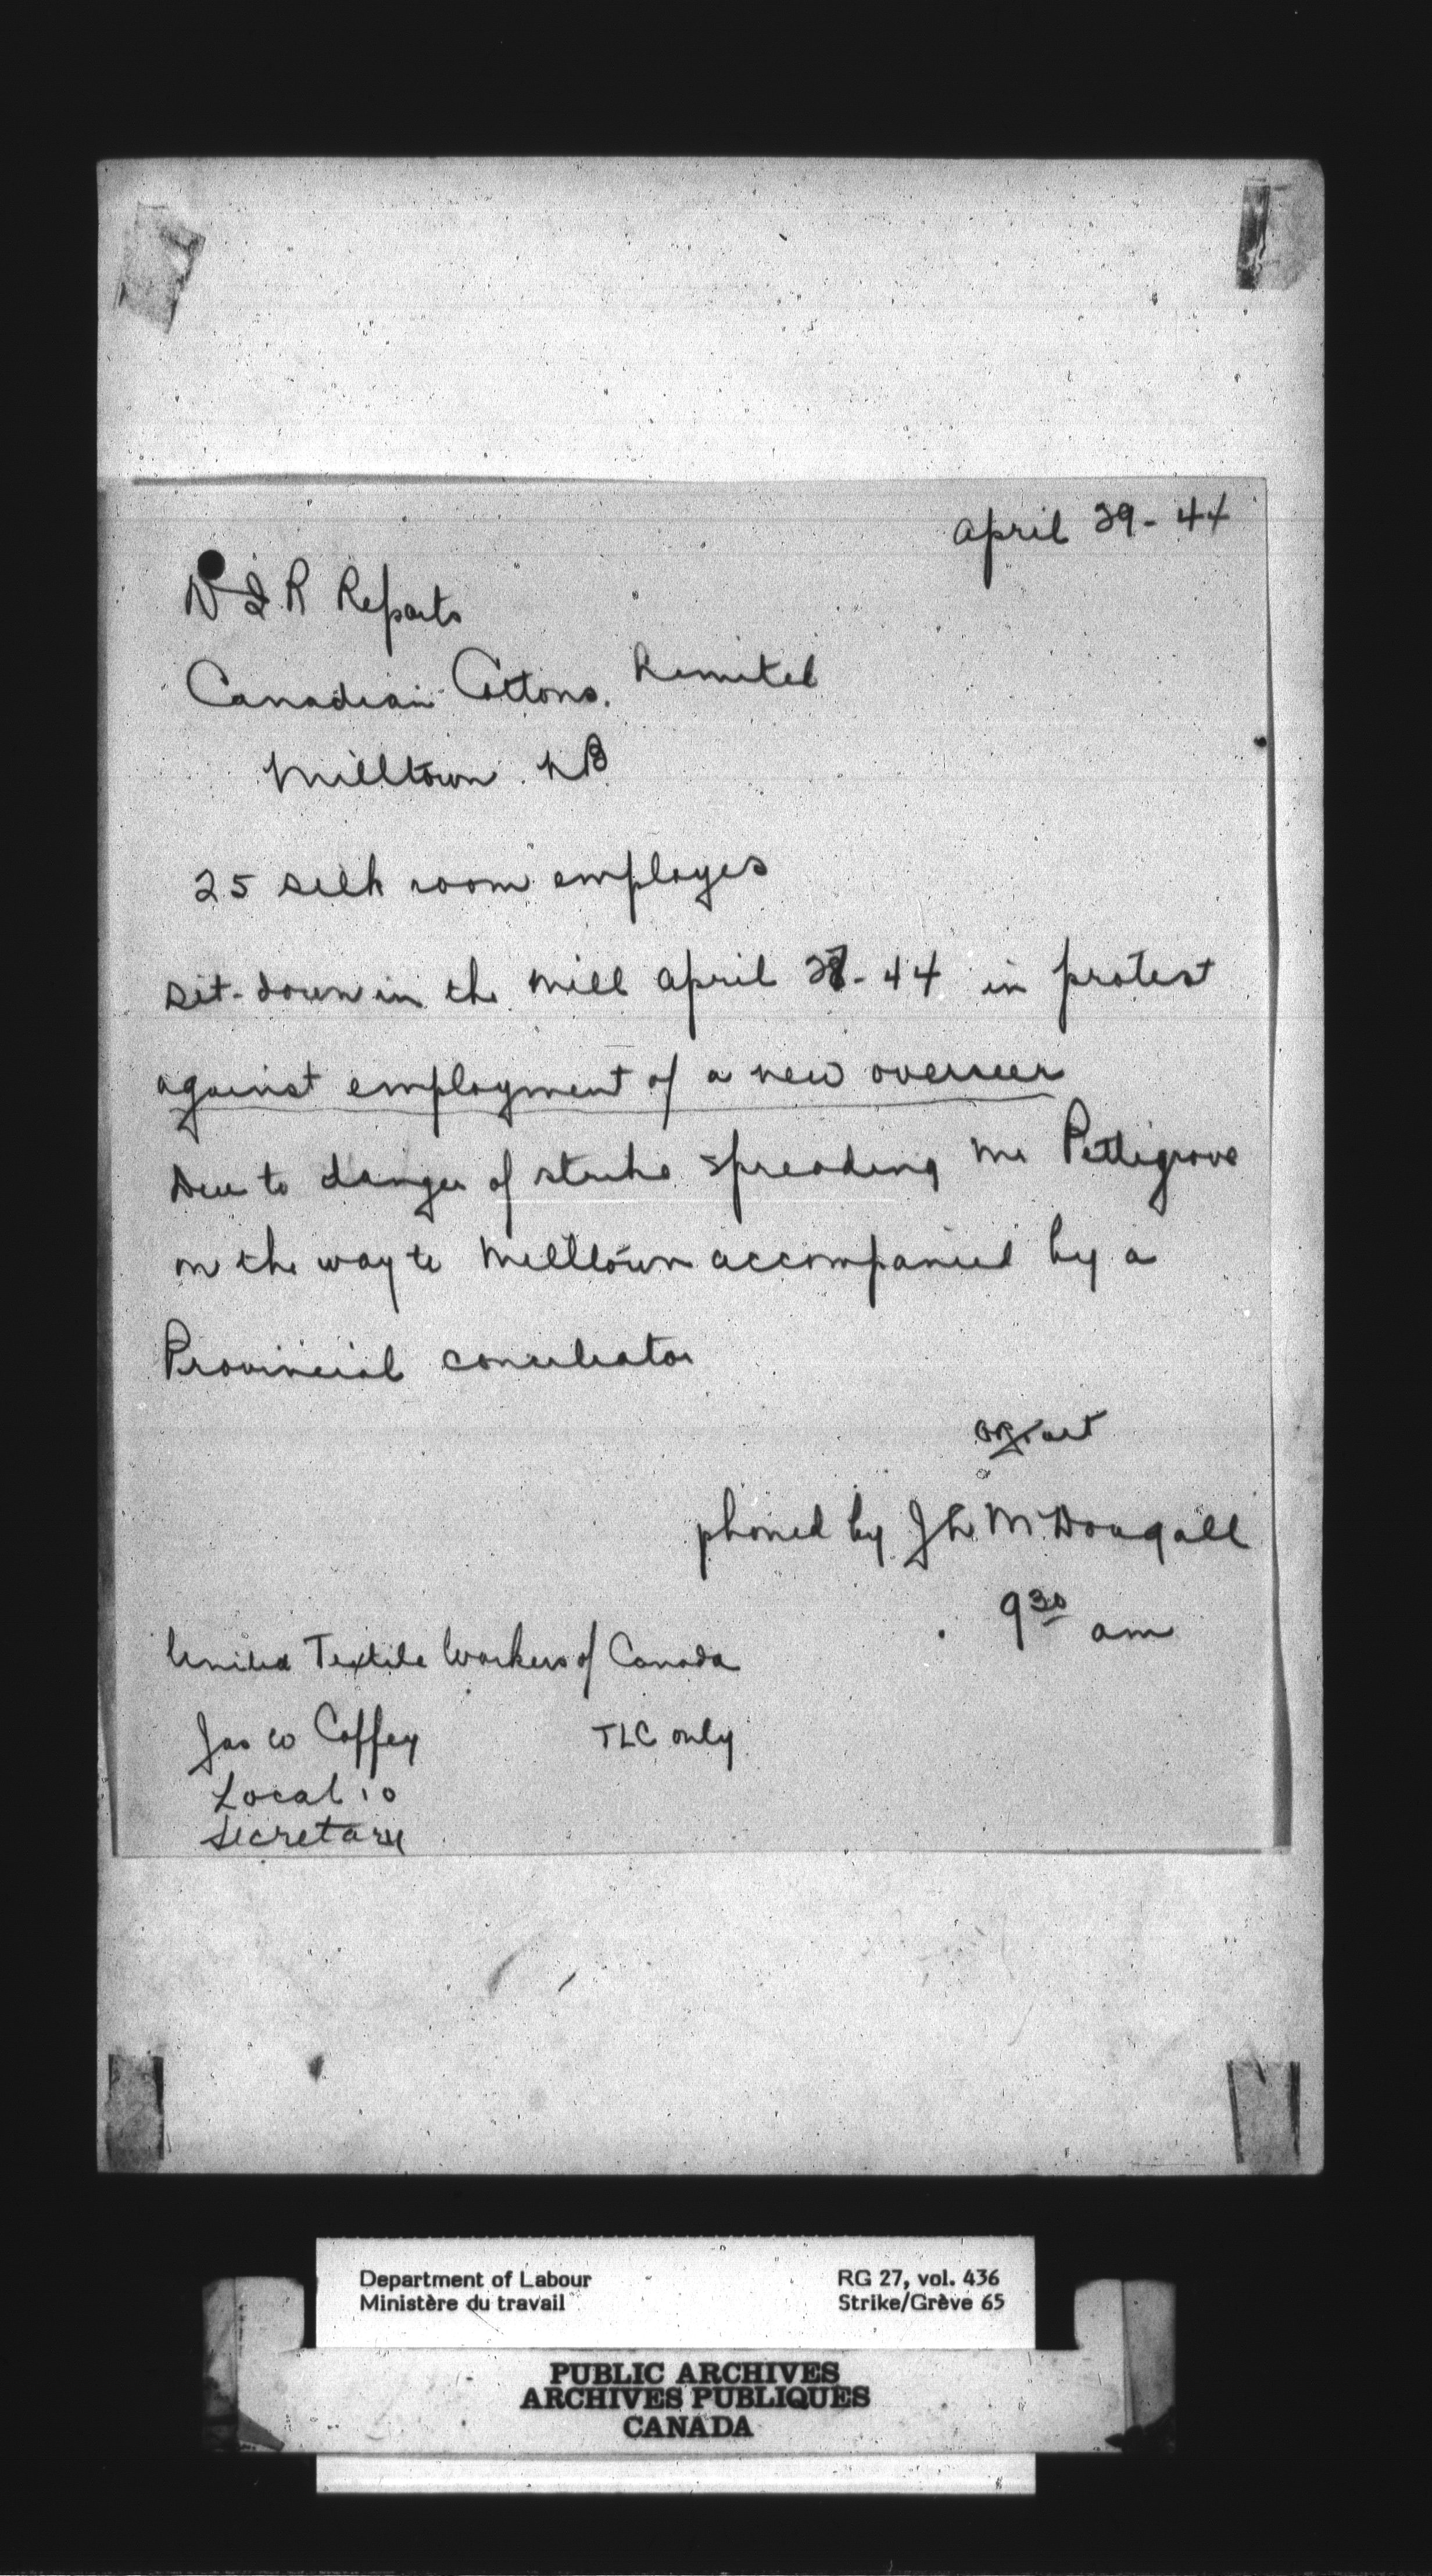 April 29 - 44
D I R Reports
Canadian Cottons. Limited
Milltown N B
25 silk room employes
sit-down in the mill April 27 - 44 in protest
against employment of a new overseer
Due to danger of strike spreading Mr Pettigrove
on the way to Milltown accompanied by a
Provincial conciliator
phoned by J L McDougall
9 30 am
United Textile Workers of Canada
Jas W Coffey TLC only
Local 10
Secretary
Department of Labour RG 27, vol. 436
Ministère du travail Strike/Grève 65
PUBLIC ARCHIVES
ARCHIVES PUBLIQUES
CANADA